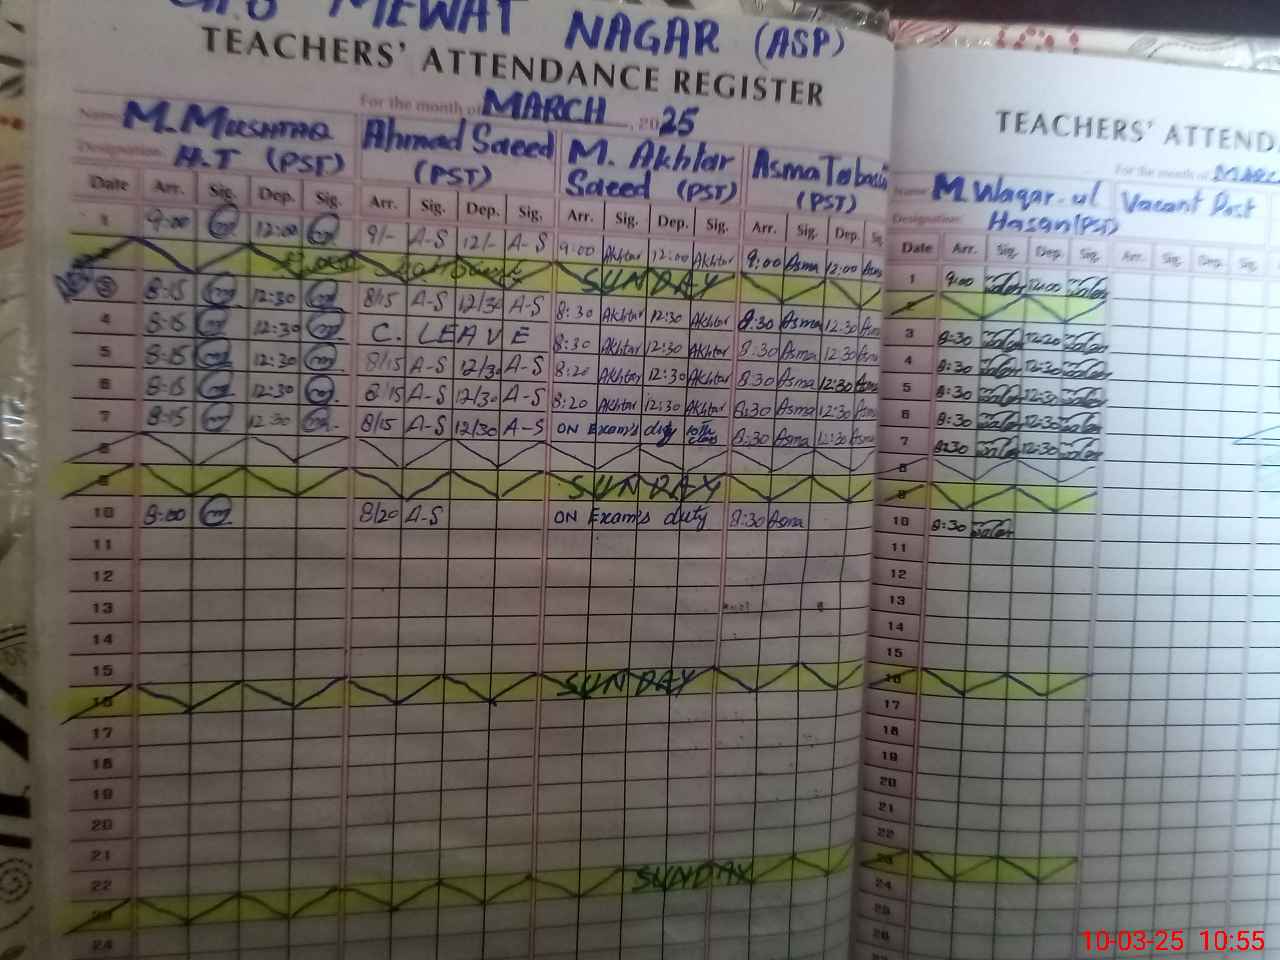 MEWAT NAGAR (ASP)
TEACHERS' ATTENDANCE REGISTER
For the month of MARCH, 2025
Name M. Mushtaq Ahmad Saeed M. Akhtar Asma
Designation H.T (PST) (PST) Saeed (PST) (PST)
Date Arr. Sig. Dep. Sig. Arr. Sig. Dep. Sig. Arr. Sig. Dep. Sig. Arr. Sig. Dep.
1 9:00 12:00 9/- A-S 12/- A-S 9:00 Akhtar 12:00 Akhtar 9:00 Asma 12:00 Asma
SUNDAY
3 8:15 12:30 8/15 A-S 12/30 A-S 8:30 Akhtar 12:30 Akhtar 8:30 Asma 12:30 Asma
4 8:15 12:30 C. LEAVE 8:30 Akhtar 12:30 Akhtar 8:30 Asma 12:30 Asma
5 8:15 12:30 8/15 A-S 12/30 A-S 8:20 Akhtar 12:30 Akhtar 8:30 Asma 12:30 Asma
6 8:15 12:30 8/15 A-S 12/30 A-S 8:20 Akhtar 12:30 Akhtar 8:30 Asma 12:30 Asma
7 8:15 12:30 8/15 A-S 12/30 A-S ON Exam's duty 10th class 8:30 Asma 12:30 Asma
8
9 SUNDAY
10 8:00 8/20 A-S ON Exam's duty 8:30 Asma
11
12
13
14
15
16 SUNDAY
17
18
19
20
21
22 SUNDAY
23
24
TEACHERS' ATTEND
For the month of MARC
Name M. Waqar-ul Vacant Post
Designation Hasan (PST)
Date Arr. Sig. Dep. Sig. Arr. Sig. Dep. Sig.
1 9:00 12:00
2
3 8:30 12:30
4 8:30 12:30
5 8:30 12:30
6 8:30 12:30
7 8:30 12:30
8
9
10 8:30
11
12
13
14
15
16
17
18
19
20
21
22
23
24
25
26
10-03-25 10:55